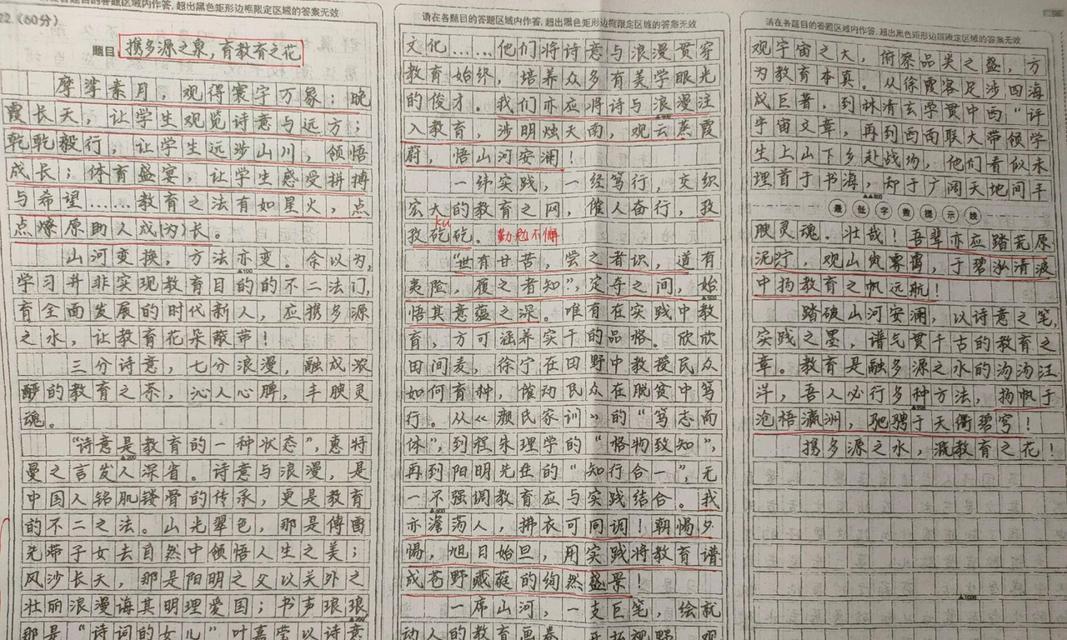 各题目的答题区域内作答,超出黑色矩形边框限定区域的答案无效
22(60分)
题目 携多源之泉,育教育之花
摩挲素月,观得寰宇万象;晚
霞长天,让学生观览诗意与远方;
乾乾毅行,让学生远涉山川,领悟
成长;体育盛宴,让学生感受拼搏
与希望……教育之法有如星火,点
点燎原助人成(为)长。
山河变换,方法亦变。余以为,
学习并非实现教育目的的不二法门,
育全面发展的时代新人,应携多源
之水,让教育花朵散蒂!
三分诗意,七分浪漫,融成浓
酽的教育之茶,沁人心脾,丰腴灵
魂。
“诗意是教育的一种状态”,惠特
曼之言发人深省。诗意与浪漫,是
中国人铭肌镂骨的传承,更是教育
的不二之法。山光翠色,那是傅雷
先带子女去自然中领悟人生之美;
风沙长天,那是阳明之父以关外之
壮丽浪漫诲其明理爱国;书声琅琅
那是“诗词的女儿”叶嘉莹以诗意
请在各题目的答题区域内作答,超出黑色矩形边框限定区域的答案无效
文化……他们将诗意与浪漫贯穿
教育始终,培养众多有美学眼光
的俊才。我们亦应将诗与浪漫注
入教育,涉明烛天南,观云蒸霞
蔚,悟山河安澜!
一纬实践,一经笃行,交织
宏大的教育之网,催人奋行,孜
孜矻矻。 kū 勤勉不懈
“世有甘苦,尝之者识,道有
夷险,履之者知”,定夺之间,始
悟其意蕴之深。唯有在实践中教
育,方可涵养实干的品格。欣欣
田间麦,徐宁在田野中教授民众
如何育种,催动民众在脱贫中笃
行。从《颜氏家训》的“笃志而
体”,到程朱理学的“格物致知”,
再到阳明先生的“知行合一”,无
一不强调教育应与实践结合。我
亦澹荡人,拂衣可同调!朝惕夕
惕,旭日始旦,用实践将教育谱
成苍野蒇莛的绚然盛景!
一席山河,一支巨笔,绘就
动人的教育画卷
请在各题目的答题区域内作答,超出黑色矩形边框限定区域的答案无效
观宇宙之大,俯察品类之盛,方
为教育本真。从徐霞客足涉四海
成巨著,到林清玄学贯中西“评
宇宙文章,再到西南联大带领学
生上山下乡赴战场,他们看似未
埋首于书海,却于广阔天地间丰
最低字数提示线
腴灵魂。壮哉!吾辈亦应踏荒原
泥泞,观山岚雾霭,于碧泓清波
中扬教育之帆远航!
踏破山河安澜,以诗意之笔,
实践之墨,谱气贯千古的教育之
章。教育是融多源之水的汤汤汪
洋,吾人必行多种方法,扬帆于
沧梧瀛洲,驰骋于天衢碧穹!
携多源之水,溉教育之花!